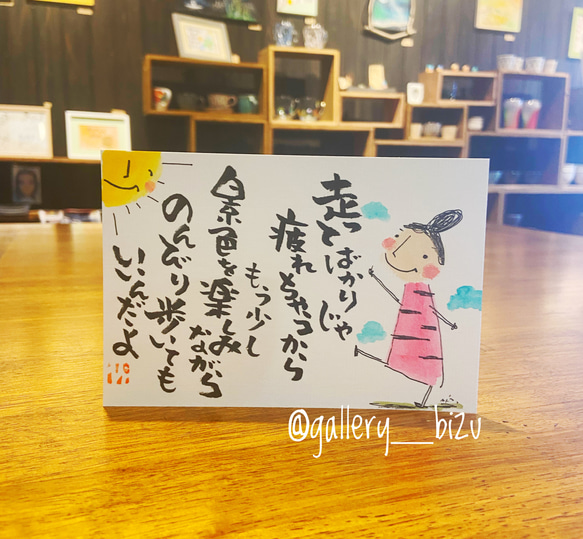 走ってばかりじゃ
疲れちゃうから
もう少し
景色を楽しみながら
のんびり歩いても
いいんだよ
@gallery__bizu